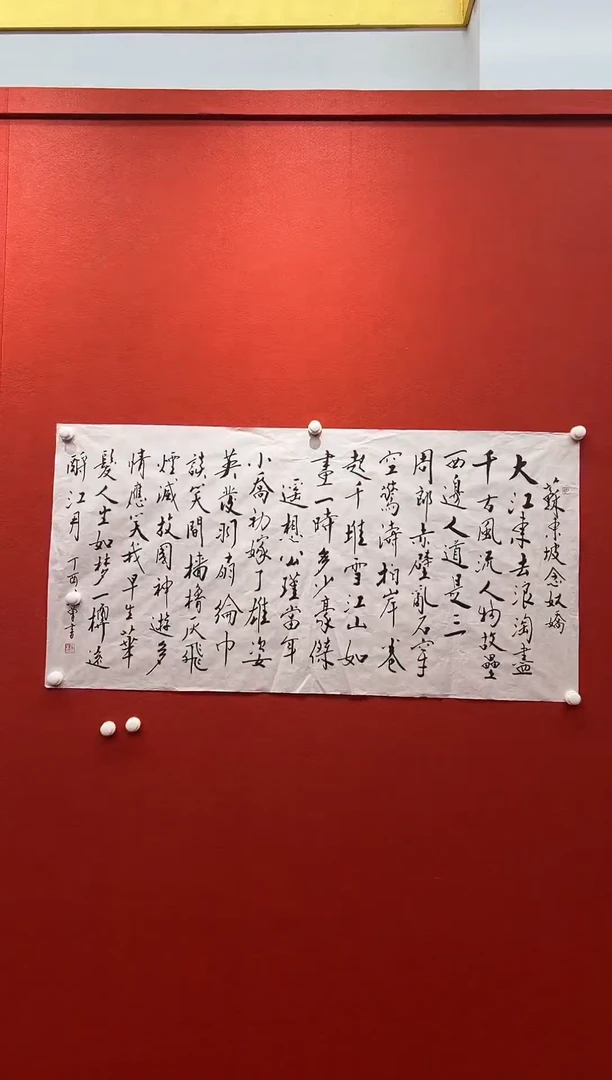 蘇東坡念奴嬌
大江東去浪淘盡
千古風流人物故壘
西邊人道是三
周郎赤壁亂石穿
空驚濤拍岸卷
起千堆雪江山如
畫一時多少豪傑
遥想公瑾當年
小喬初嫁了雄姿
英發羽扇綸巾
談笑間檣櫓灰飛
煙滅故國神遊多
情應笑我早生華
髮人生如夢一樽還
酹江月
丁酉 書